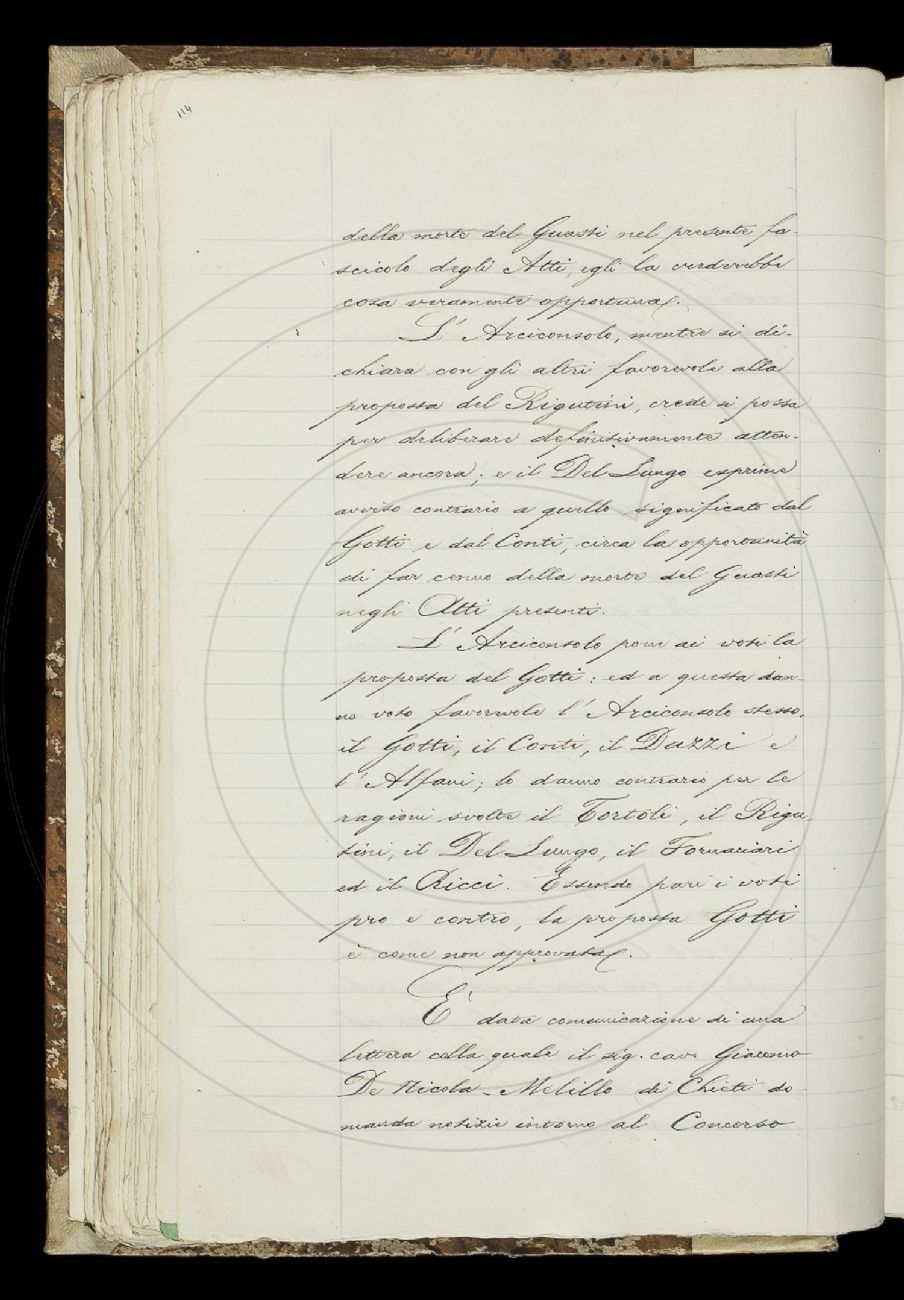 114
della morte del Guasti nel presente fa-
scicolo degli Atti, egli la crederebbe
cosa veramente opportuna.
L'Arciconsolo, mentre si di-
chiara con gli altri favorevole alla
proposta del Rigutini, crede si possa
per deliberare definitivamente atten-
dere ancora; e il Del Lungo esprime
avviso contrario a quello significato dal
Gotti e dal Conti, circa la opportunità
di far cenno della morte del Guasti
negli Atti presenti.
L'Arciconsolo pone ai voti la
proposta del Gotti: ed a questa dan-
no voto favorevole l'Arciconsolo stesso,
il Gotti, il Conti, il Dazzi e
l'Alfani; lo danno contrario per le
ragioni svolte il Tortoli, il Rigu
tini, il Del Lungo, il Fornaciari
ed il Ricci. Essendo pari i voti
pro e contro, la proposta Gotti
è come non approvata.
E' data comunicazione di una
lettera colla quale il sig. cav. Giacomo
De Nicola-Melillo di Chieti do
manda notizie intorno al Concorso